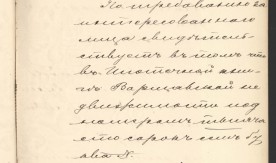 По требованію за
интересованнаго
лица свидѣтель
ствуетъ въ томъ что
въ Ипотечной кни
гѣ Варшавской не
движимости под
номеромъ тысяча
сто сорокъ